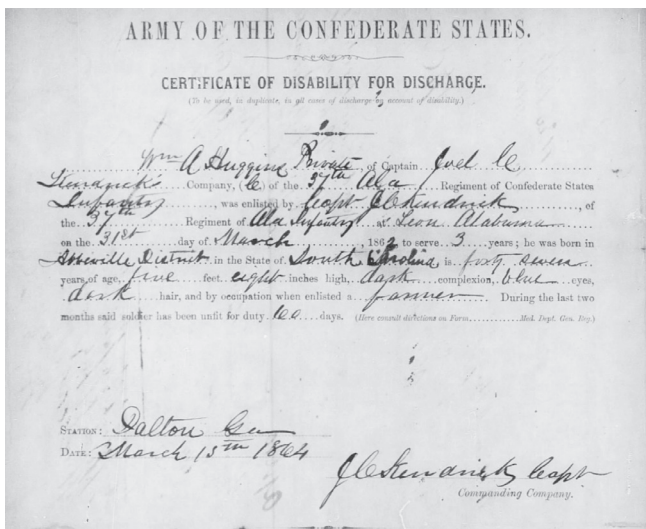 ARMY OF THE CONFEDERATE STATES.
CERTIFICATE OF DISABILITY FOR DISCHARGE.
(To be used, in duplicate, in all cases of discharge on account of disability.)
Wm A Huggins Private, of Captain Joel C
Kendrick Company, (C) of the 37th Ala Regiment of Confederate States
Infantry was enlisted by Capt J C Kendrick, of
the 37th Regiment of Ala Infantry at Leon Alabama
on the 31st day of March 1862 to serve 3 years; he was born in
Abbeville District in the State of South Carolina, is forty seven
years of age, five feet eight inches high, dark complexion, blue eyes,
dark hair, and by occupation when enlisted a farmer During the last two
months said soldier has been unfit for duty 60 days. (Here consult directions on Form Med. Dept. Gen. Reg.)
STATION: Dalton Ga
DATE: March 15th 1864
J C Kendrick Capt
Commanding Company.